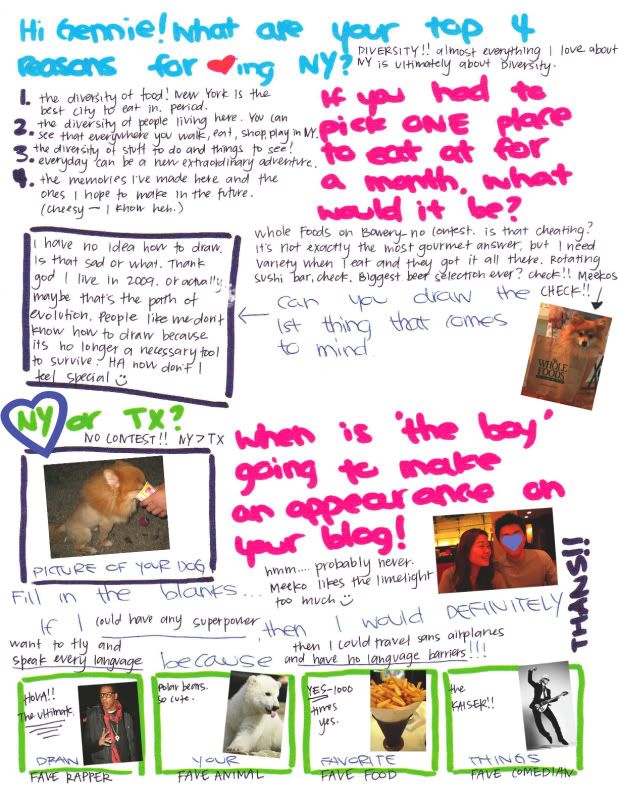 Hi Gennie! What are your top 4
reasons for ing NY?
DIVERSITY!! almost everything I love about
NY is ultimately about Diversity.
1. the diversity of food! New York is the
best city to eat in. period.
2. the diversity of people living here. You can
see that everywhere you walk, eat, shop, play in NY.
3. the diversity of stuff to do and things to see!
everyday can be a new extraordinary adventure.
4. the memories I've made here and the
ones I hope to make in the future.
(cheesy — I know heh.)
If you had to
pick ONE place
to eat at for
a month, what
would it be?
Whole Foods on Bowery - no contest. is that cheating?
It's not exactly the most gourmet answer, but I need
variety when I eat and they got it all there. Rotating
sushi bar, check. Biggest beer selection ever? check!! Meekos
CHECK!!
I have no idea how to draw.
Is that sad or what. Thank
god I live in 2009. or actually
maybe that's the path of
evolution. People like me don't
know how to draw because
its no longer a necessary tool
to survive. HA now don't I
feel special
can you draw the
1st thing that comes
to mind.
WHOLE
FOODS
NY or TX?
NO CONTEST!! NY > TX
When is 'the boy'
going to make
an appearance on
your blog!
PICTURE OF YOUR DOG
hmm.... probably never.
Meeko likes the limelight
too much
THANS!!
Fill in the blanks...
If I could have any superpower, then I would DEFINITELY
want to fly and
speak every language because then I could travel sans airplanes
and have no language barriers!!!
HOVA!!
The Ultimate.
Polar bears.
so cute.
YES - 1000
times
yes.
the
KAISER!!
DRAW YOUR FAVORITE THINGS
FAVE RAPPER FAVE ANIMAL FAVE FOOD FAVE COMEDIAN